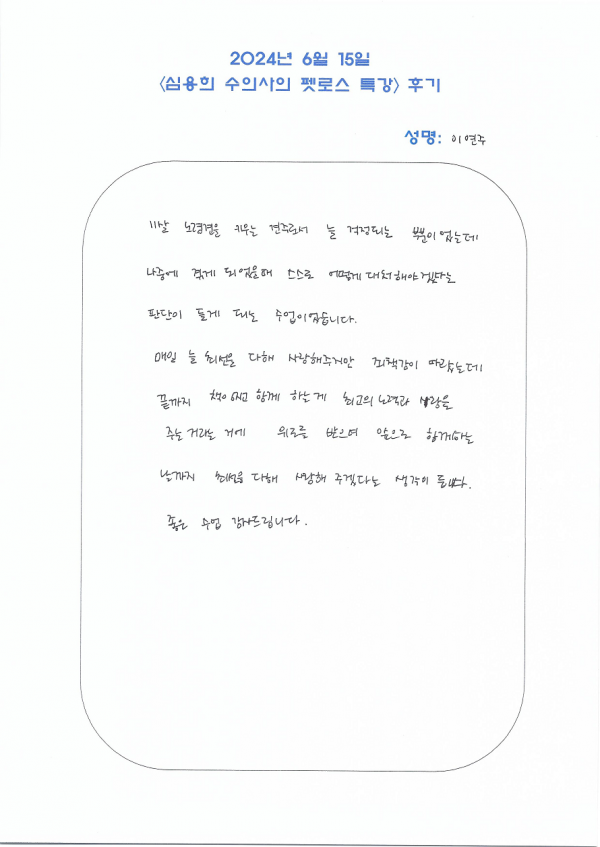 2024년 6월 15일
<심용희 수의사의 펫로스 특강> 후기
성명: 이연주
11살 노령견을 키우는 견주로서 늘 걱정되는 부분이 있는데
나중에 겪게 되었을때 스스로 어떻게 대처해야겠다는
판단이 들게 되는 수업이었습니다.
매일 늘 최선을 다해 사랑해주지만 죄책감이 따랐는데
끝까지 책임지고 함께 하는게 최고의 노력과 사랑을
주는거라는 거에 위로를 받으며 앞으로 함께하는
날까지 최선을 다해 사랑해 주겠다는 생각이 듭니다.
좋은 수업 감사드립니다.